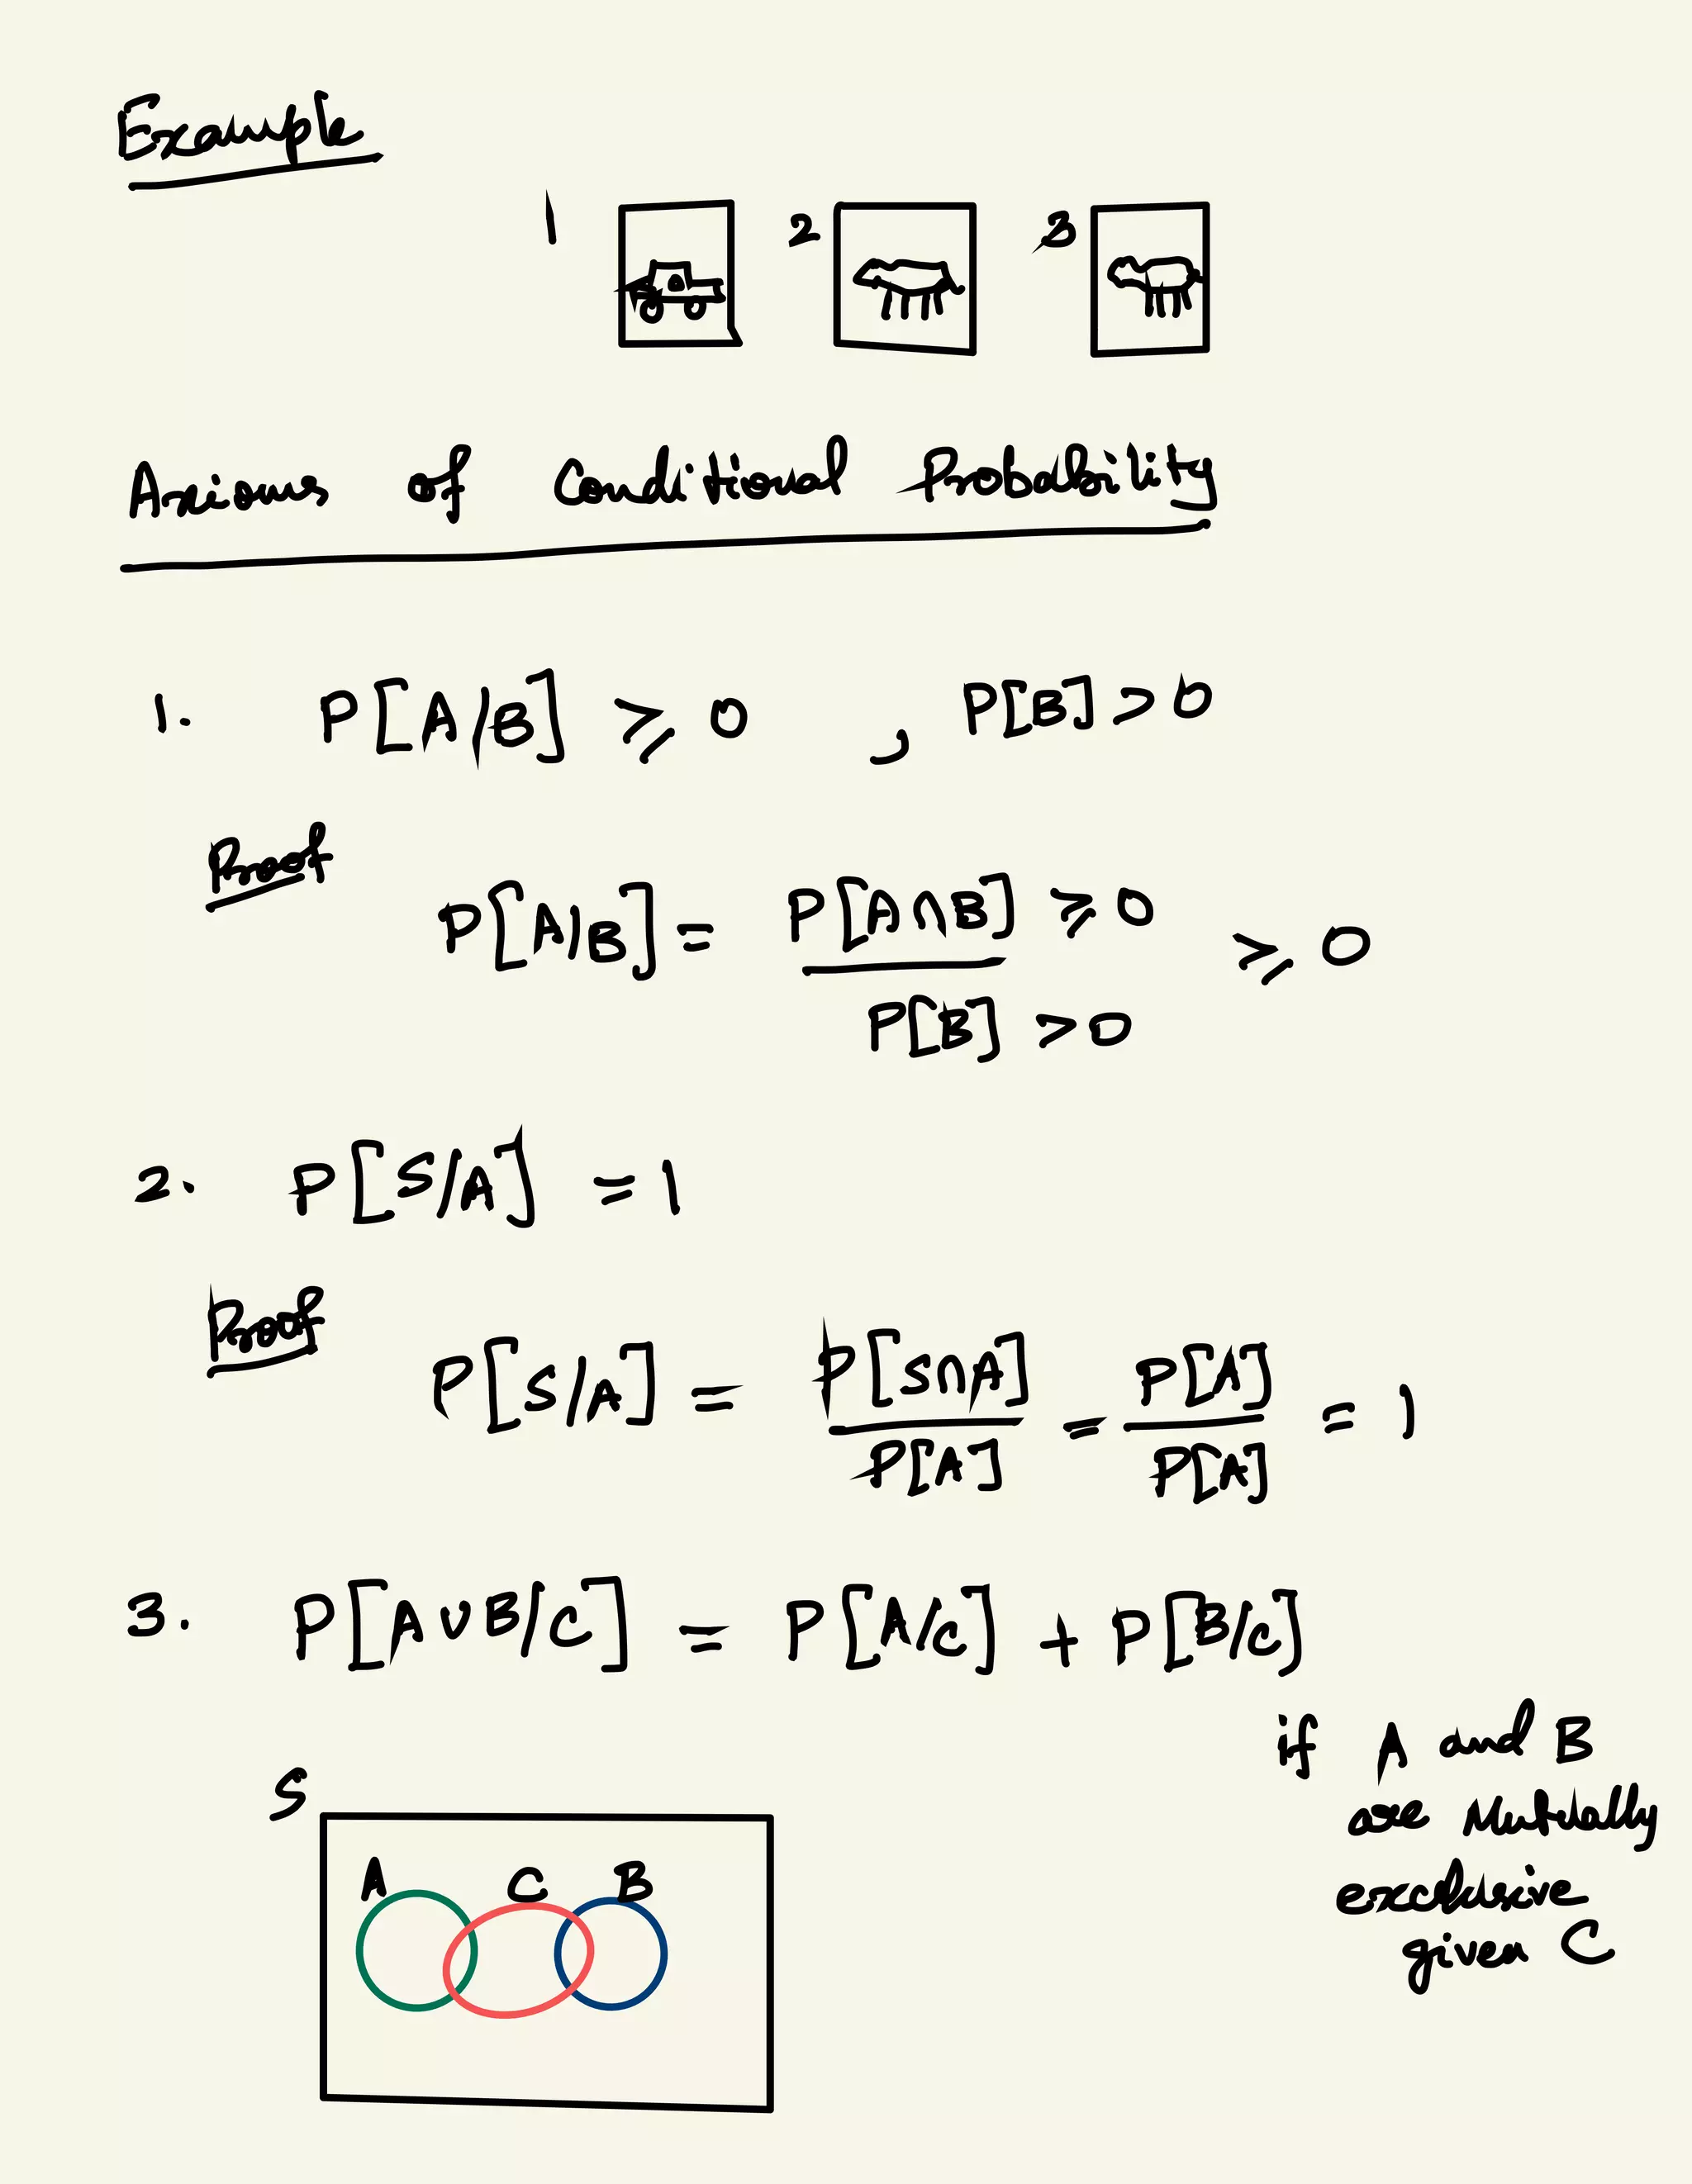 Example
1 2 3
Axioms of Conditional Probability
1. P[A/B] ⩾ 0 , P[B] > 0
Proof
P[A/B] = P[A∩B] ⩾ 0 / P[B] > 0 ⩾ 0
2. P[S/A] = 1
Proof
P[S/A] = P[S∩A] / P[A] = P[A] / P[A] = 1
3. P[A∪B/C] = P[A/C] + P[B/C]
if A and B
are Mutually
exclusive
given C
S
A C B